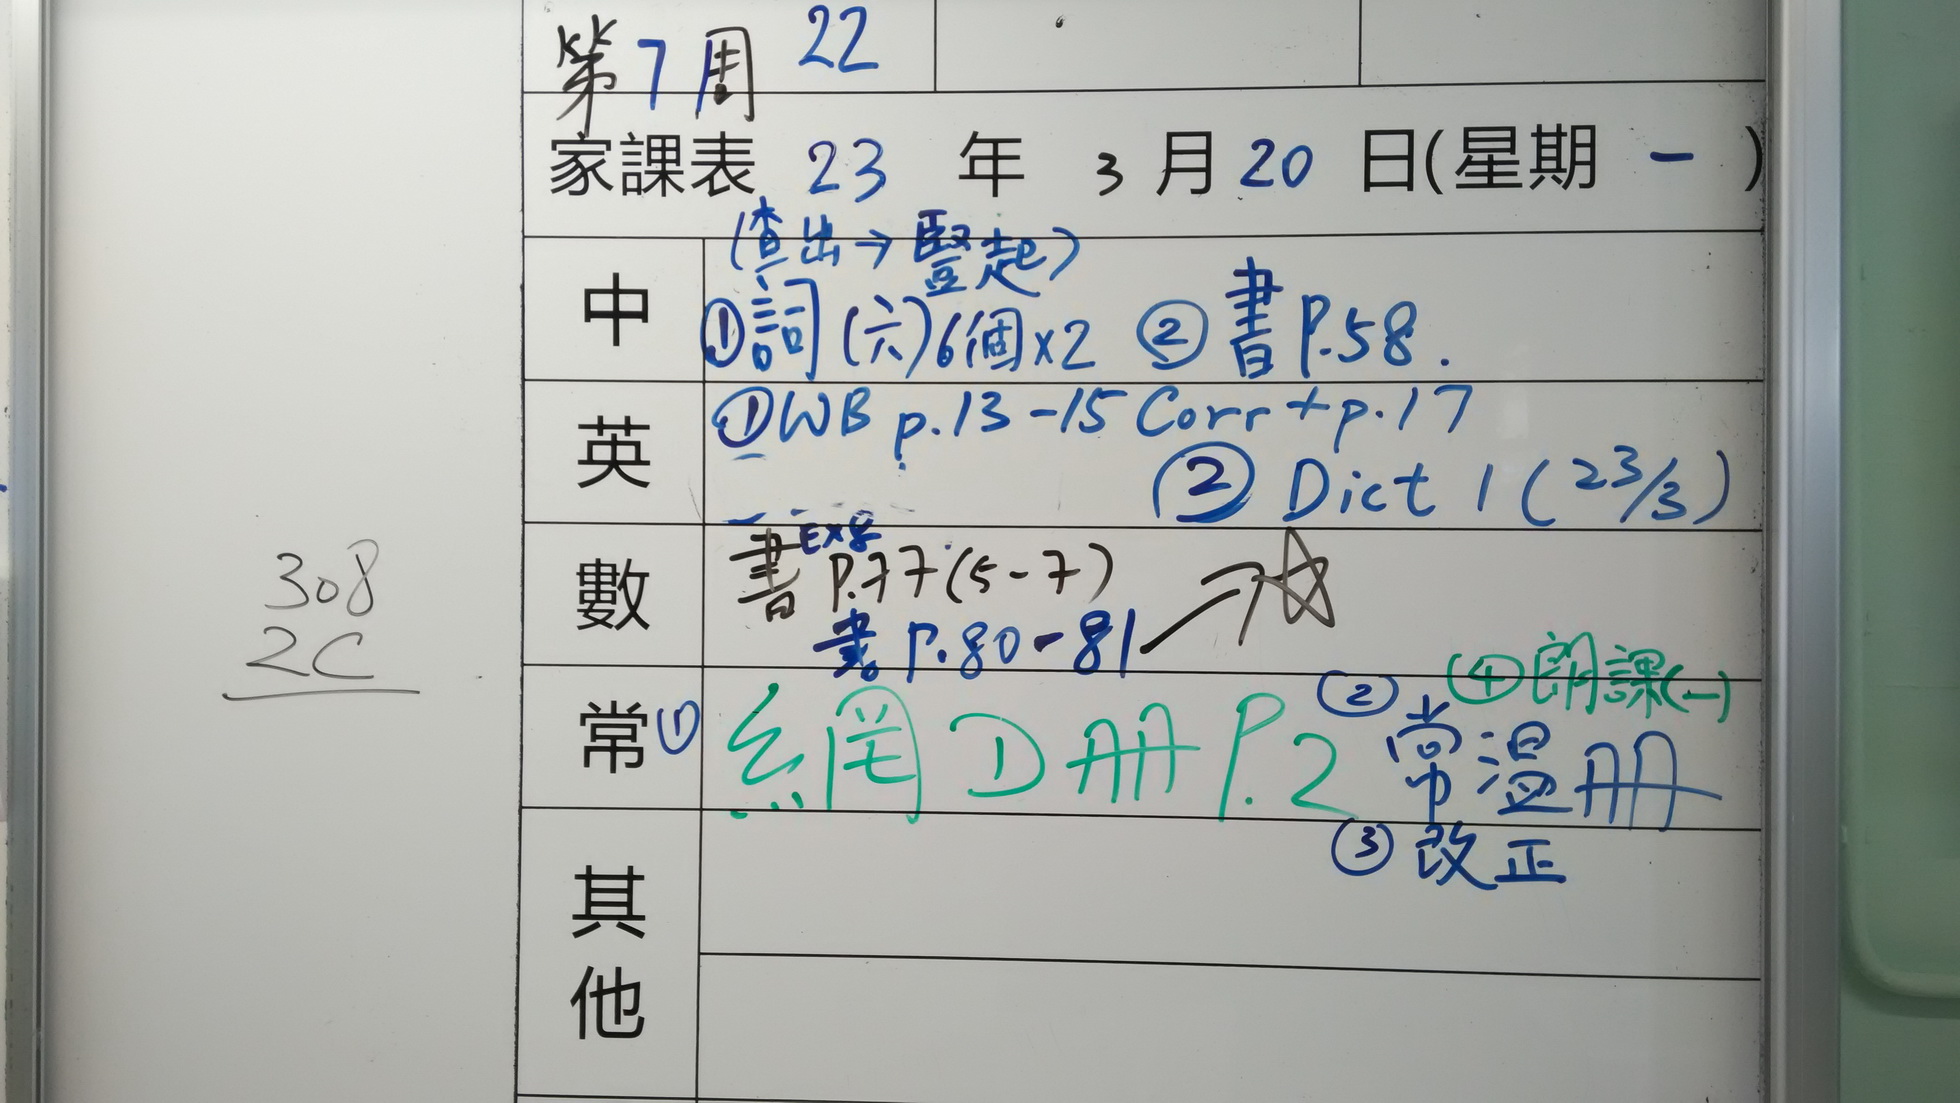 第7周 22
家課表 23 年 3 月 20 日(星期 一 )
(查出→豎起)
中 ①詞(六)6個×2 ②書P.58.
英 ①WB p.13-15 Corr+p.17
②Dict 1(23/3)
數 書Ex8 P.77(5-7)
書P.80-81
④朗課(一)
常 ①網D册P.2 ②常溫册
③改正
其他
308
2C